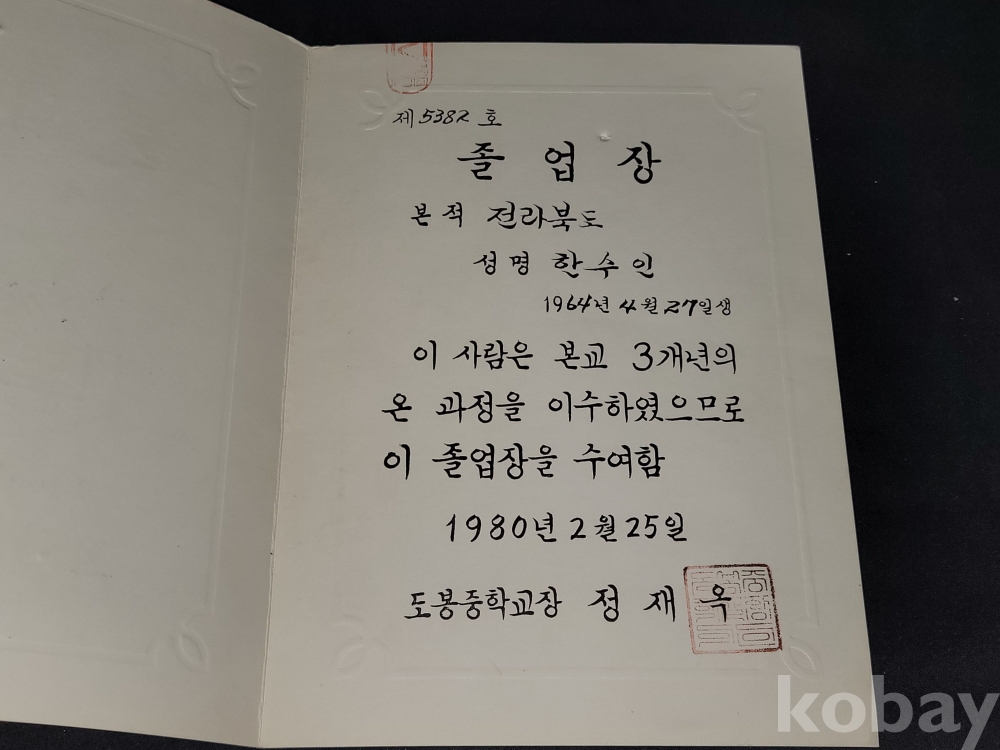 제 5382 호
졸업장
본적 전라북도
성명 한수인
1964년 4월 27일생
이 사람은 본교 3개년의
온 과정을 이수하였으므로
이 졸업장을 수여함
1980년 2월 25일
도봉중학교장 정재옥
kobay